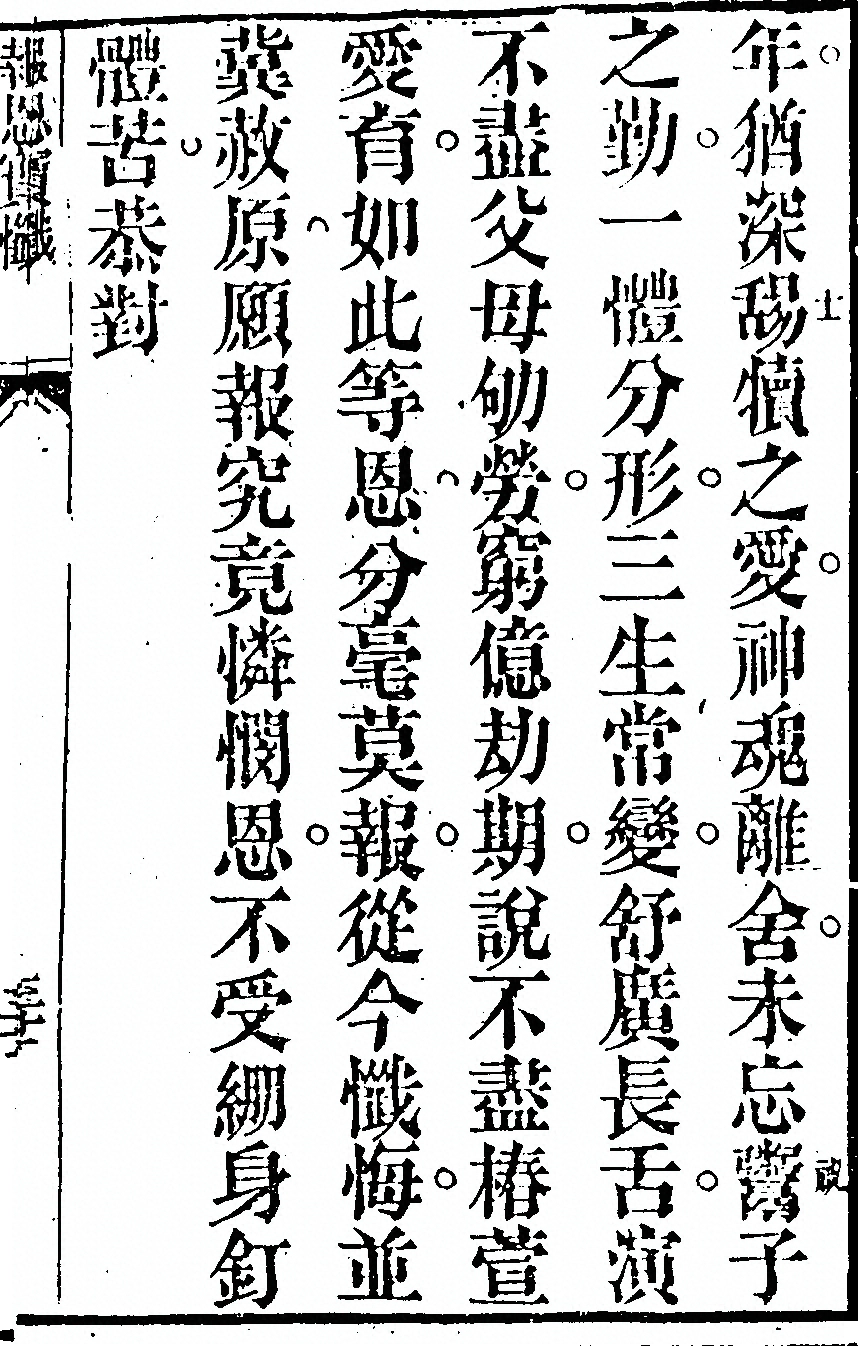 年猶深舐犢之愛神魂離舍未忘鬻子
之勤一體分形三生常變舒廣長舌演
不盡父母劬勞窮億劫期說不盡椿萱
愛育如此等恩分毫莫報從今懺悔並
冀赦原願報究竟憐憫恩不受綳身釘
體苦恭對
報恩寶懺